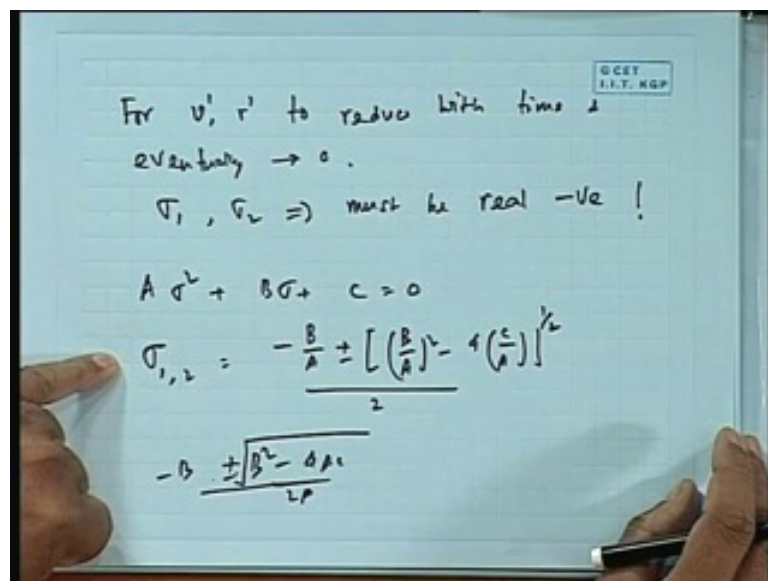 GCET
I.I.T. KGP
For v', r' to reduce with time &
eventually → 0.
σ₁, σ₂ ⇒ must be real -ve !
A σ² + Bσ + C = 0
σ₁,₂ = - B/A ± [(B/A)² - 4(C/A)]^1/2 / 2
-B ± √B² - 4AC / 2A